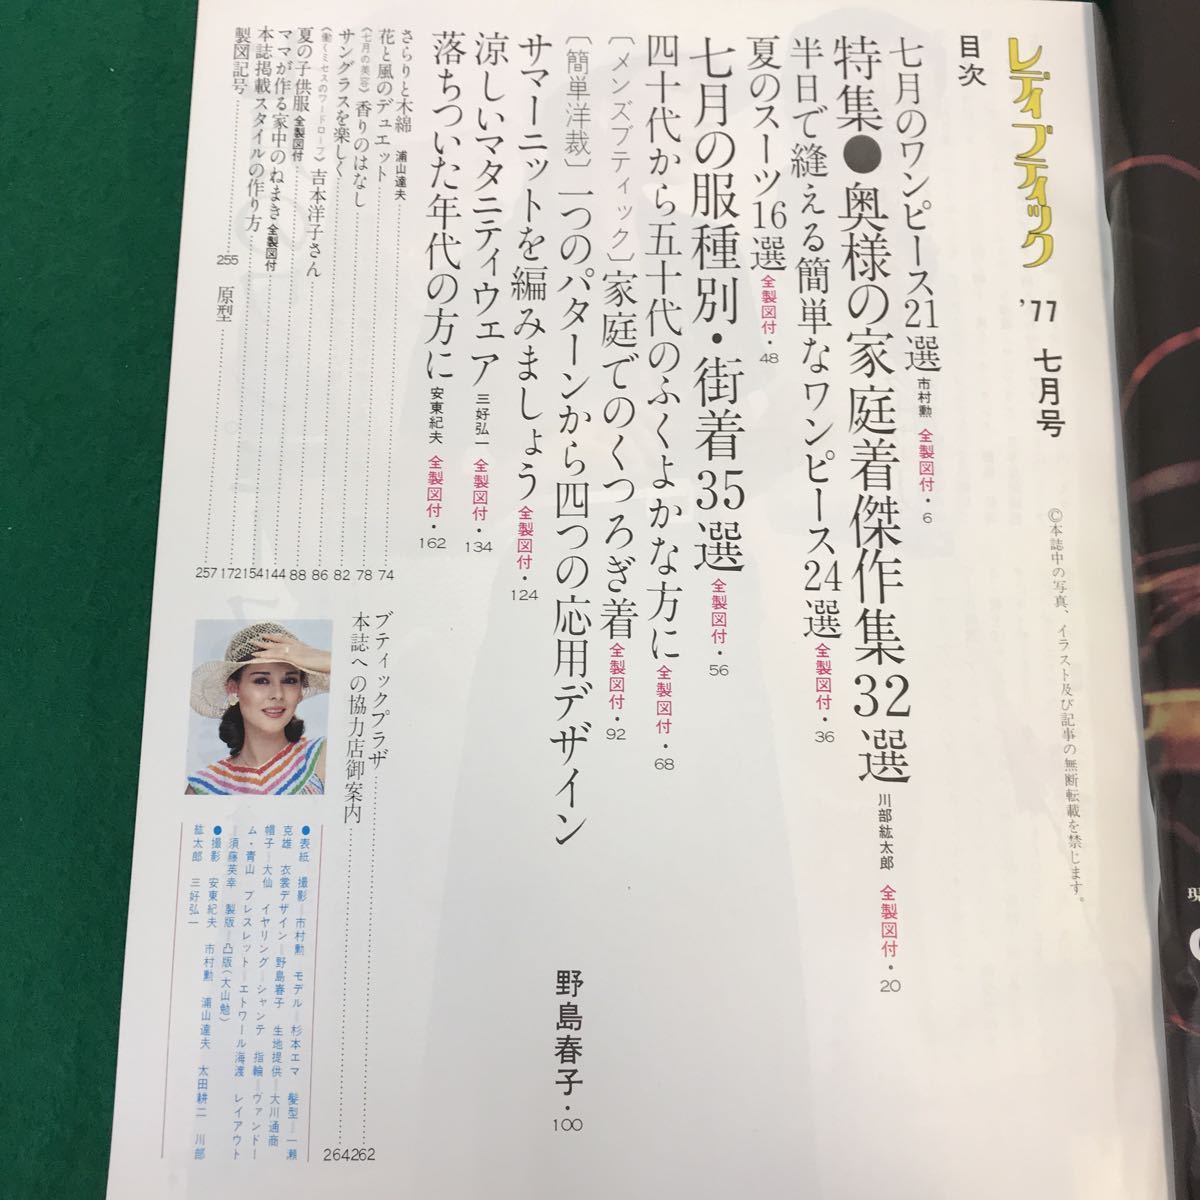 レディブティック '77 七月号
©本誌中の写真、イラスト及び記事の無断転載を禁じます。
目次
七月のワンピース21選 市村勲 全製図付・6
特集●奥様の家庭着傑作集32選 川部紘太郎 全製図付・20
半日で縫える簡単なワンピース24選 全製図付・36
夏のスーツ16選 全製図付・48
七月の服種別・街着35選 全製図付・56
四十代から五十代のふくよかな方に 全製図付・68
〔メンズブティック〕家庭でのくつろぎ着 全製図付・92
〔簡単洋裁〕一つのパターンから四つの応用デザイン 野島春子・100
サマーニットを編みましょう 全製図付・124
涼しいマタニティウェア 三好弘一 全製図付・134
落ちついた年代の方に 安東紀夫 全製図付・162
さらりと木綿 浦山達夫 74
花と風のデュエット 78
《七月の美容》香りのはなし 82
サングラスを楽しく 86
《働くミセスのワードローブ》吉本洋子さん 88
夏の子供服 全製図付 144
ママが作る家中のねまき 全製図付 154
本誌掲載スタイルの作り方 172
製図記号 255 原型 257
ブティックプラザ 262
本誌への協力店御案内 264
●表紙 撮影＝市村勲 モデル＝杉本エマ 髪型＝一瀬
克雄 衣裳デザイン＝野島春子 生地提供＝大川通商
帽子＝大仙 イヤリング＝シャンテ 指輪＝ヴァンドー
ム・青山 ブレスレット＝エトワール海渡 レイアウト
＝須藤英幸 製版＝凸版(大山勉)
●撮影 安東紀夫 市村勲 浦山達夫 太田耕二 川部
紘太郎 三好弘一
現